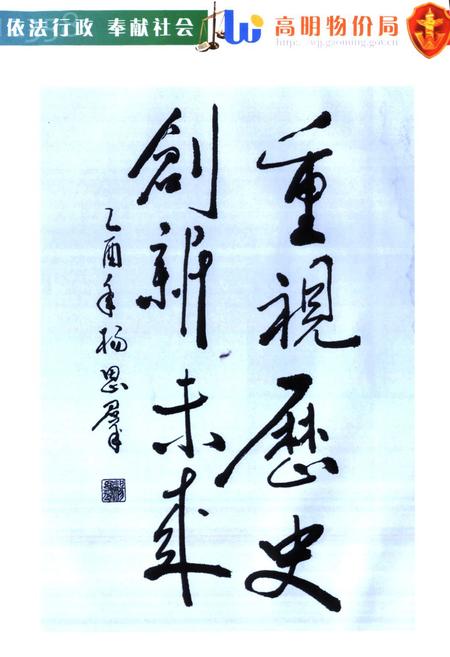 依法行政 奉献社会
高明物价局
http://wjg.gaoming.gov.cn
重視歷史
創新未来
乙酉年杨思羣